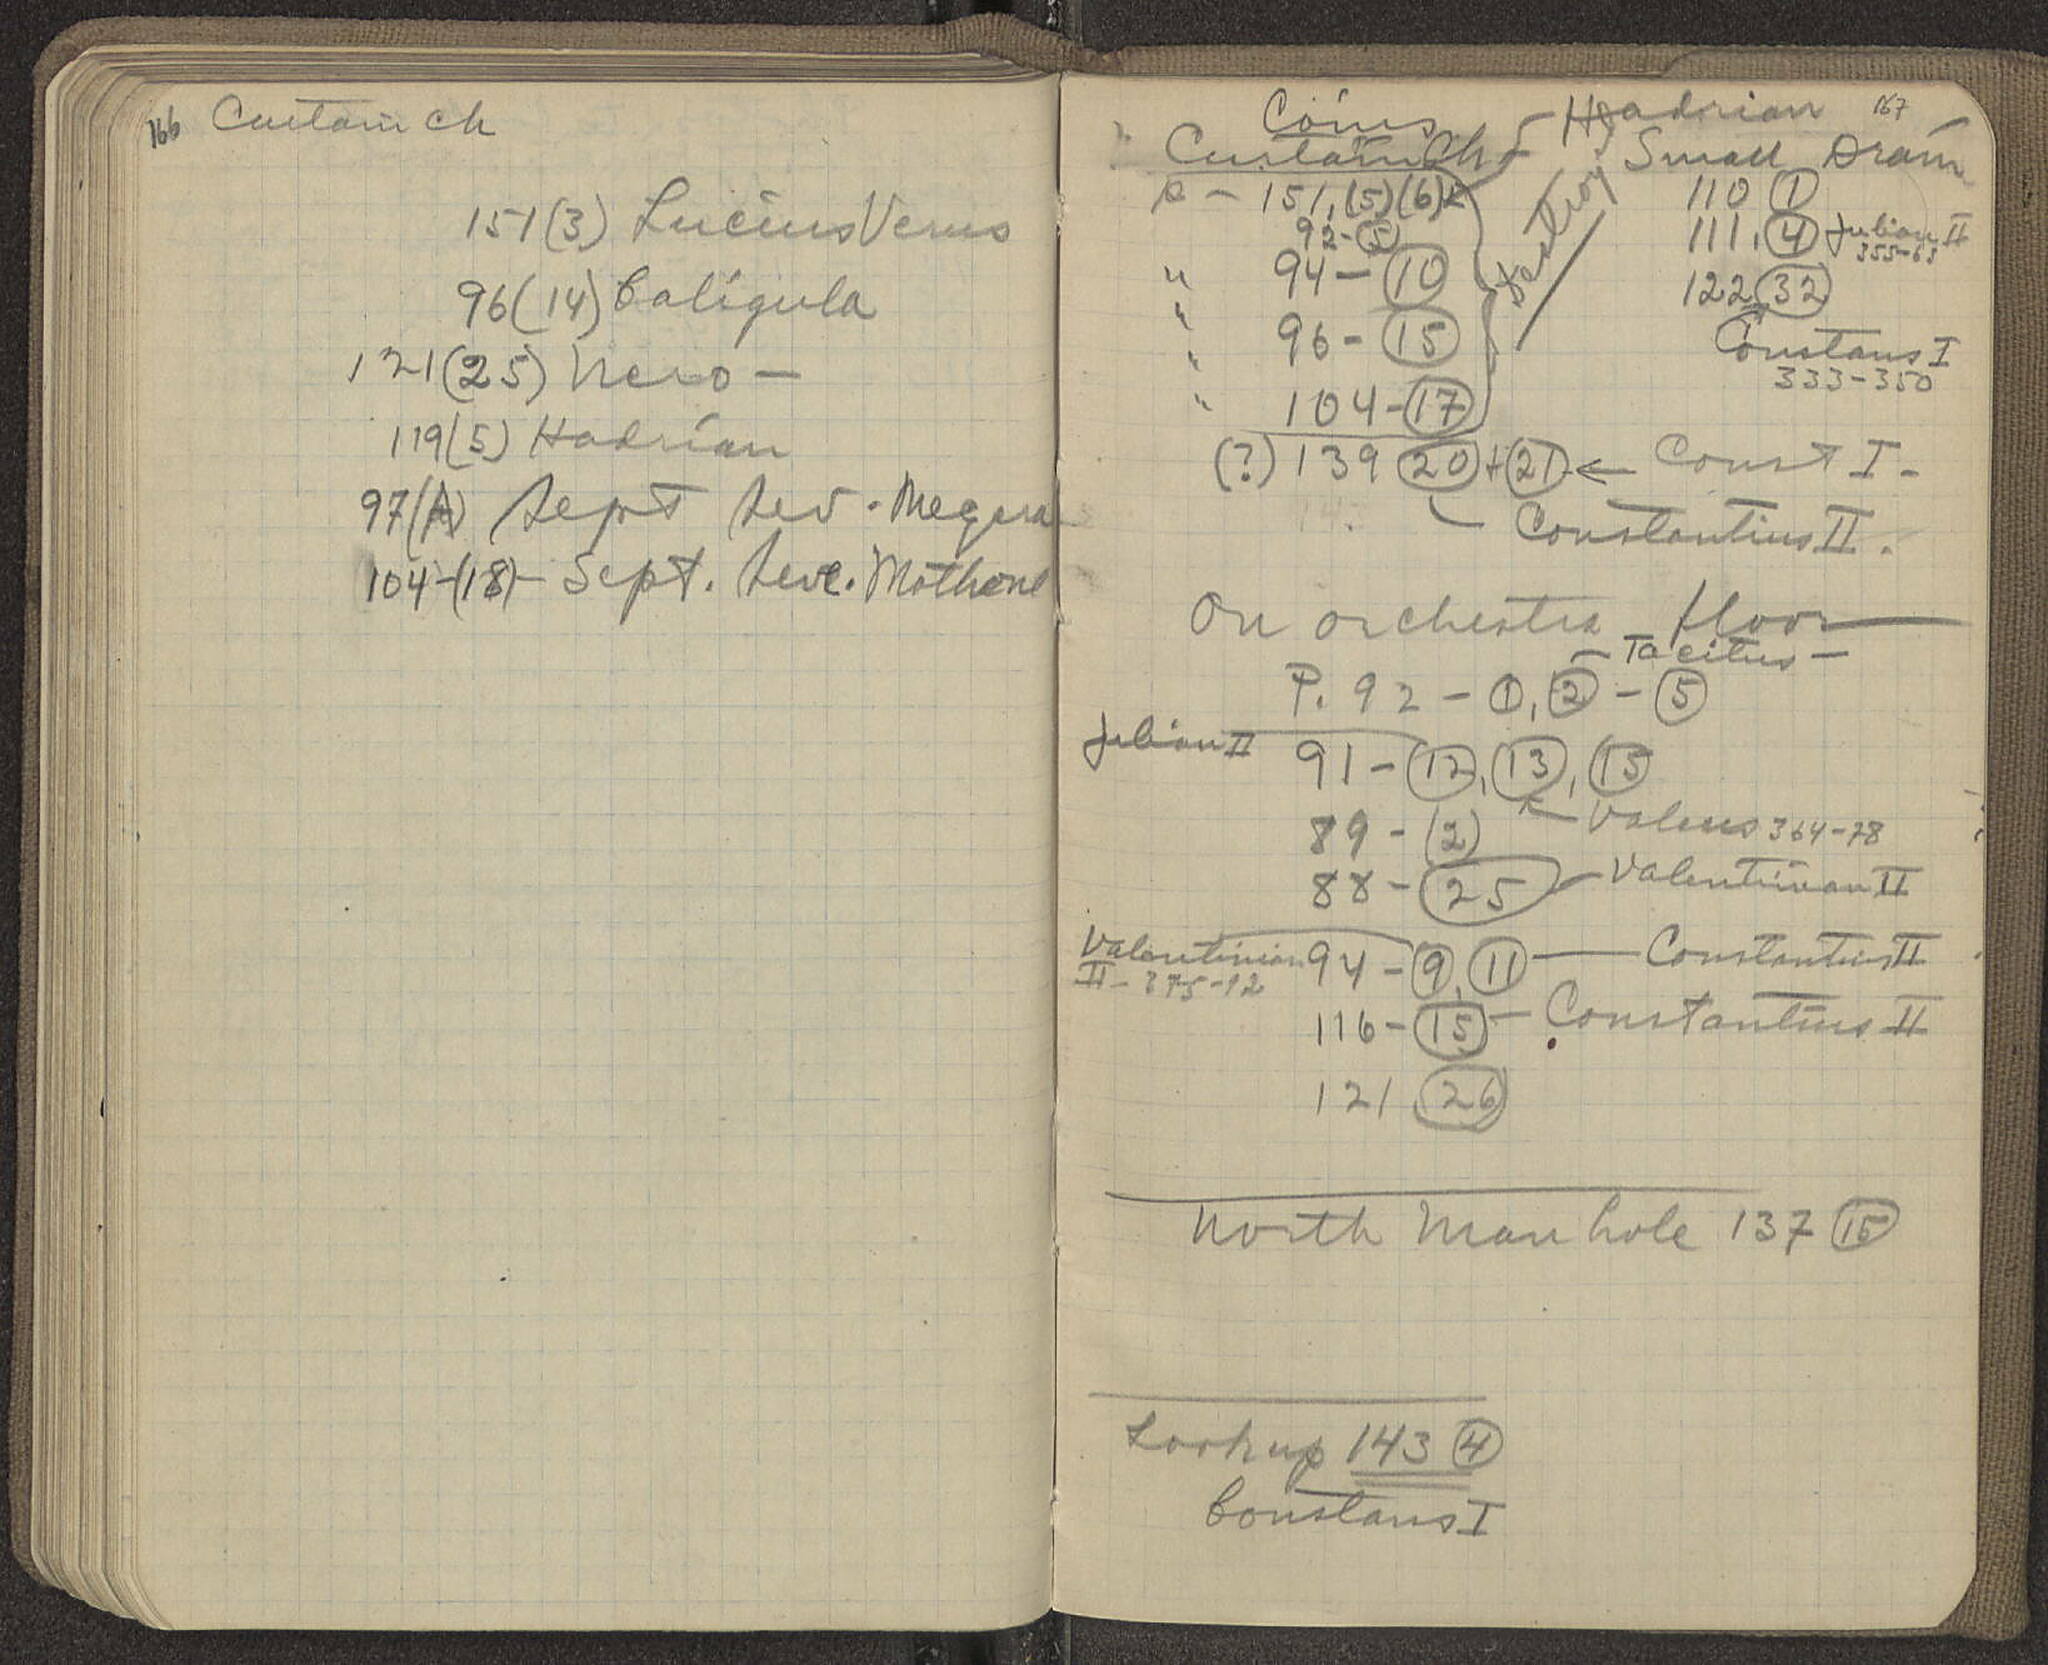 166 Curtain Ch
151(3) Lucius Verus
96(14) Caligula
121(25) Nero —
119(5) Hadrian
97(A) Sept Sev. Megara
104-(18)- Sept. Seve. Mothone
167
Coins
Curtain Ch - Hadrian
151, (5)(6)
92-(5)
" 94 - (10)
" 96 - (15)
" 104-(17)
destroy
(?) 139 (20) + (21) ← Const I -
Constantius II.
Small Drain
110 (1)
111, (4) Julian II
355-63
122 (32)
Constans I
333-350
On orchestra floor
Tacitus -
P. 92 - (1), (2) - (5)
Julian II 91 - (12), (13), (15)
Valens 364-78
89 - (2)
88 - (25) - Valentinian II
Valentinian 94 - (9), (11) — Constantius II
II - 375-92
116 - (15) - Constantius II
121 (26)
North Manhole 137 (15)
Look up 143 (4)
Constans I